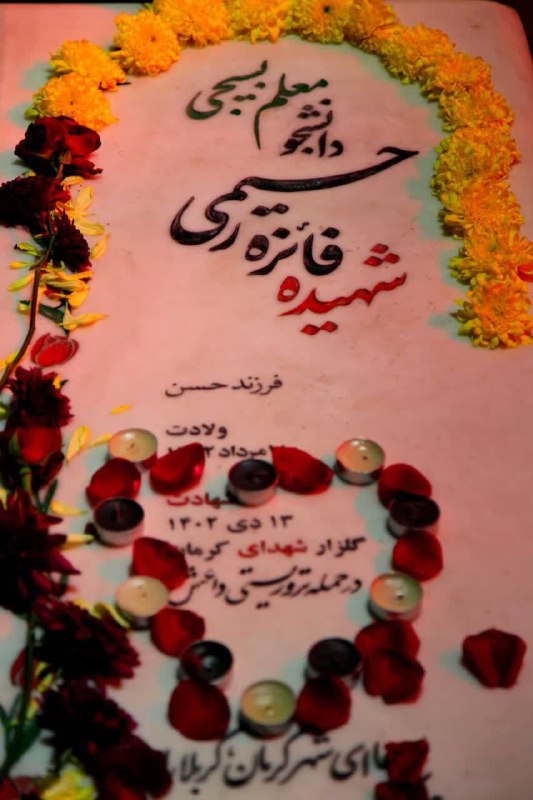 معلم بسیجی
دانشجو
شهیده فائزه رحیمی
فرزند حسن
ولادت
مرداد
شهادت
۱۳ دی ۱۴۰۲
گلزار شهدای کرمان
در حمله تروریستی داعش
ای شهر کرمان، کربلا